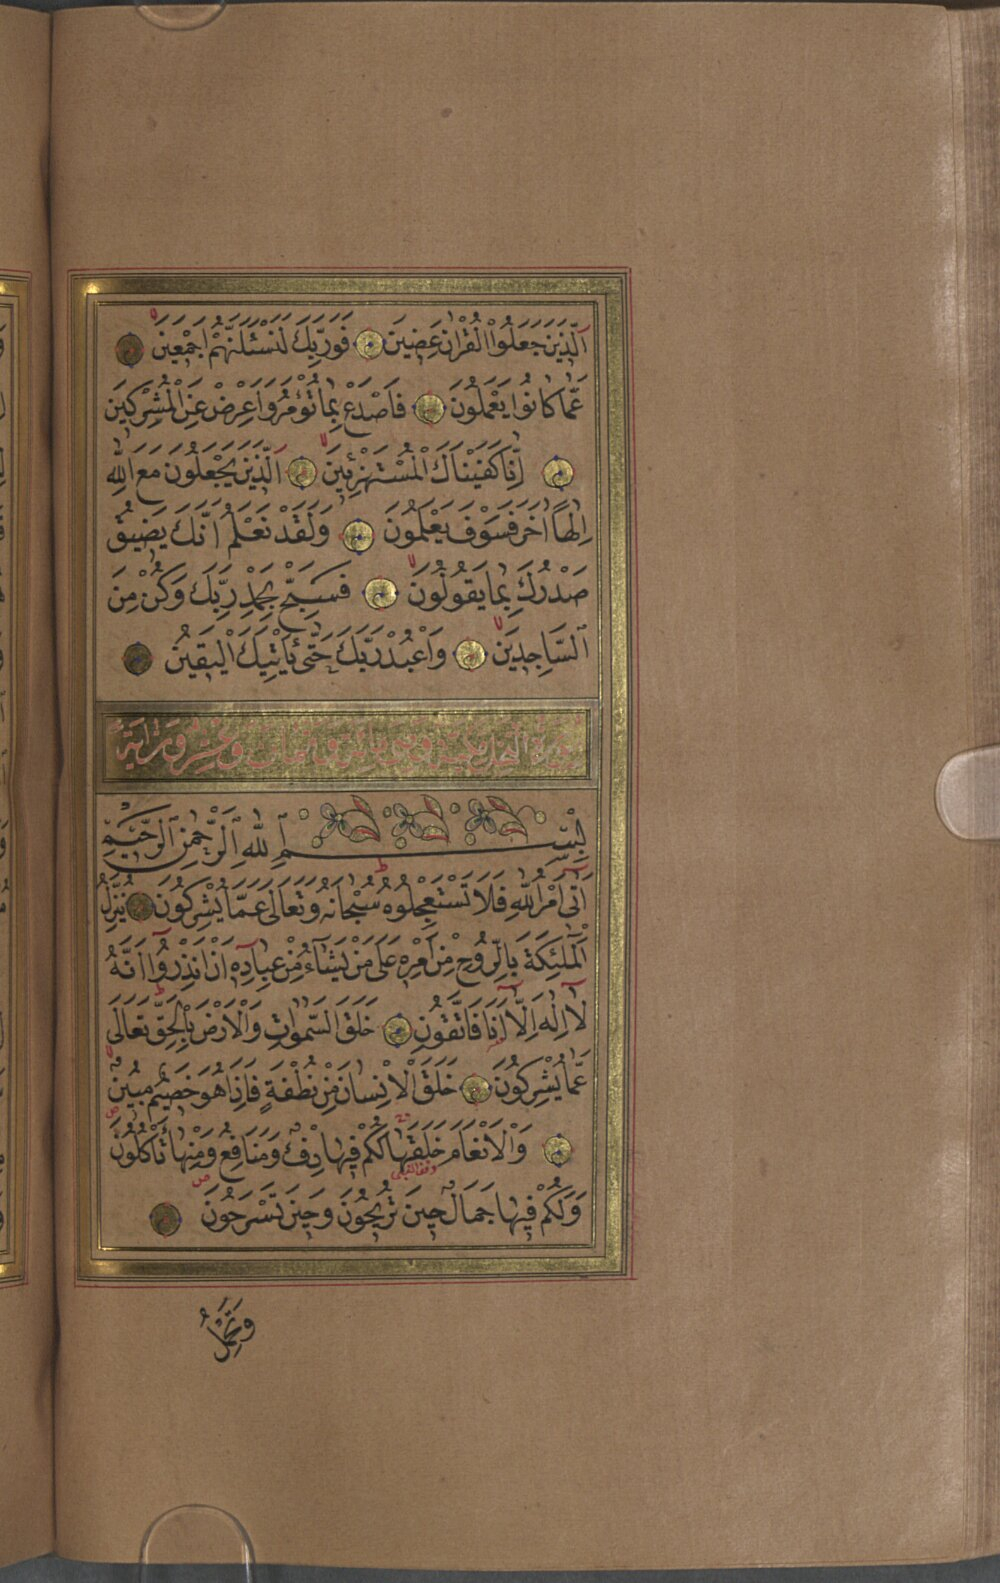 اَلَّذِينَ جَعَلُوا الْقُرْاٰنَ عِضِينَ فَوَرَبِّكَ لَنَسْئَلَنَّهُمْ اَجْمَعِينَ
عَمَّا كَانُوا يَعْمَلُونَ فَاصْدَعْ بِمَا تُؤْمَرُ وَاَعْرِضْ عَنِ الْمُشْرِكِينَ
اِنَّا كَفَيْنَاكَ الْمُسْتَهْزِئِينَ اَلَّذِينَ يَجْعَلُونَ مَعَ اللّٰهِ
اِلٰهًا اٰخَرَ فَسَوْفَ يَعْلَمُونَ وَلَقَدْ نَعْلَمُ اَنَّكَ يَضِيقُ
صَدْرُكَ بِمَا يَقُولُونَ فَسَبِّحْ بِحَمْدِ رَبِّكَ وَكُنْ مِنَ
السَّاجِدِينَ وَاعْبُدْ رَبَّكَ حَتّٰى يَأْتِيَكَ الْيَقِينُ
سورة النحل مكية وهى مائة وثمان وعشرون اية
بِسْمِ اللّٰهِ الرَّحْمٰنِ الرَّحِيمِ
اَتٰى اَمْرُ اللّٰهِ فَلَا تَسْتَعْجِلُوهُ سُبْحَانَهُ وَتَعَالٰى عَمَّا يُشْرِكُونَ يُنَزِّلُ
الْمَلٰئِكَةَ بِالرُّوحِ مِنْ اَمْرِهِ عَلٰى مَنْ يَشَاءُ مِنْ عِبَادِهِ اَنْ اَنْذِرُوا اَنَّهُ
لَا اِلٰهَ اِلَّا اَنَا فَاتَّقُونِ خَلَقَ السَّمٰوَاتِ وَالْاَرْضَ بِالْحَقِّ تَعَالٰى
عَمَّا يُشْرِكُونَ خَلَقَ الْاِنْسَانَ مِنْ نُطْفَةٍ فَاِذَا هُوَ خَصِيمٌ مُبِينٌ
وَالْاَنْعَامَ خَلَقَهَا لَكُمْ فِيهَا دِفْءٌ وَمَنَافِعُ وَمِنْهَا تَأْكُلُونَ
وَلَكُمْ فِيهَا جَمَالٌ حِينَ تُرِيحُونَ وَحِينَ تَسْرَحُونَ
وَتَحْمِلُ